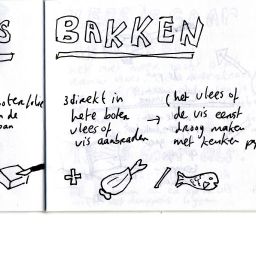 S
BAKKEN
boter/olie
n de
pan
3 direkt in
hete boter
vlees of
vis aanbraden
→
( het vlees of
de vis eerst
droog maken
met keuken p
+
/